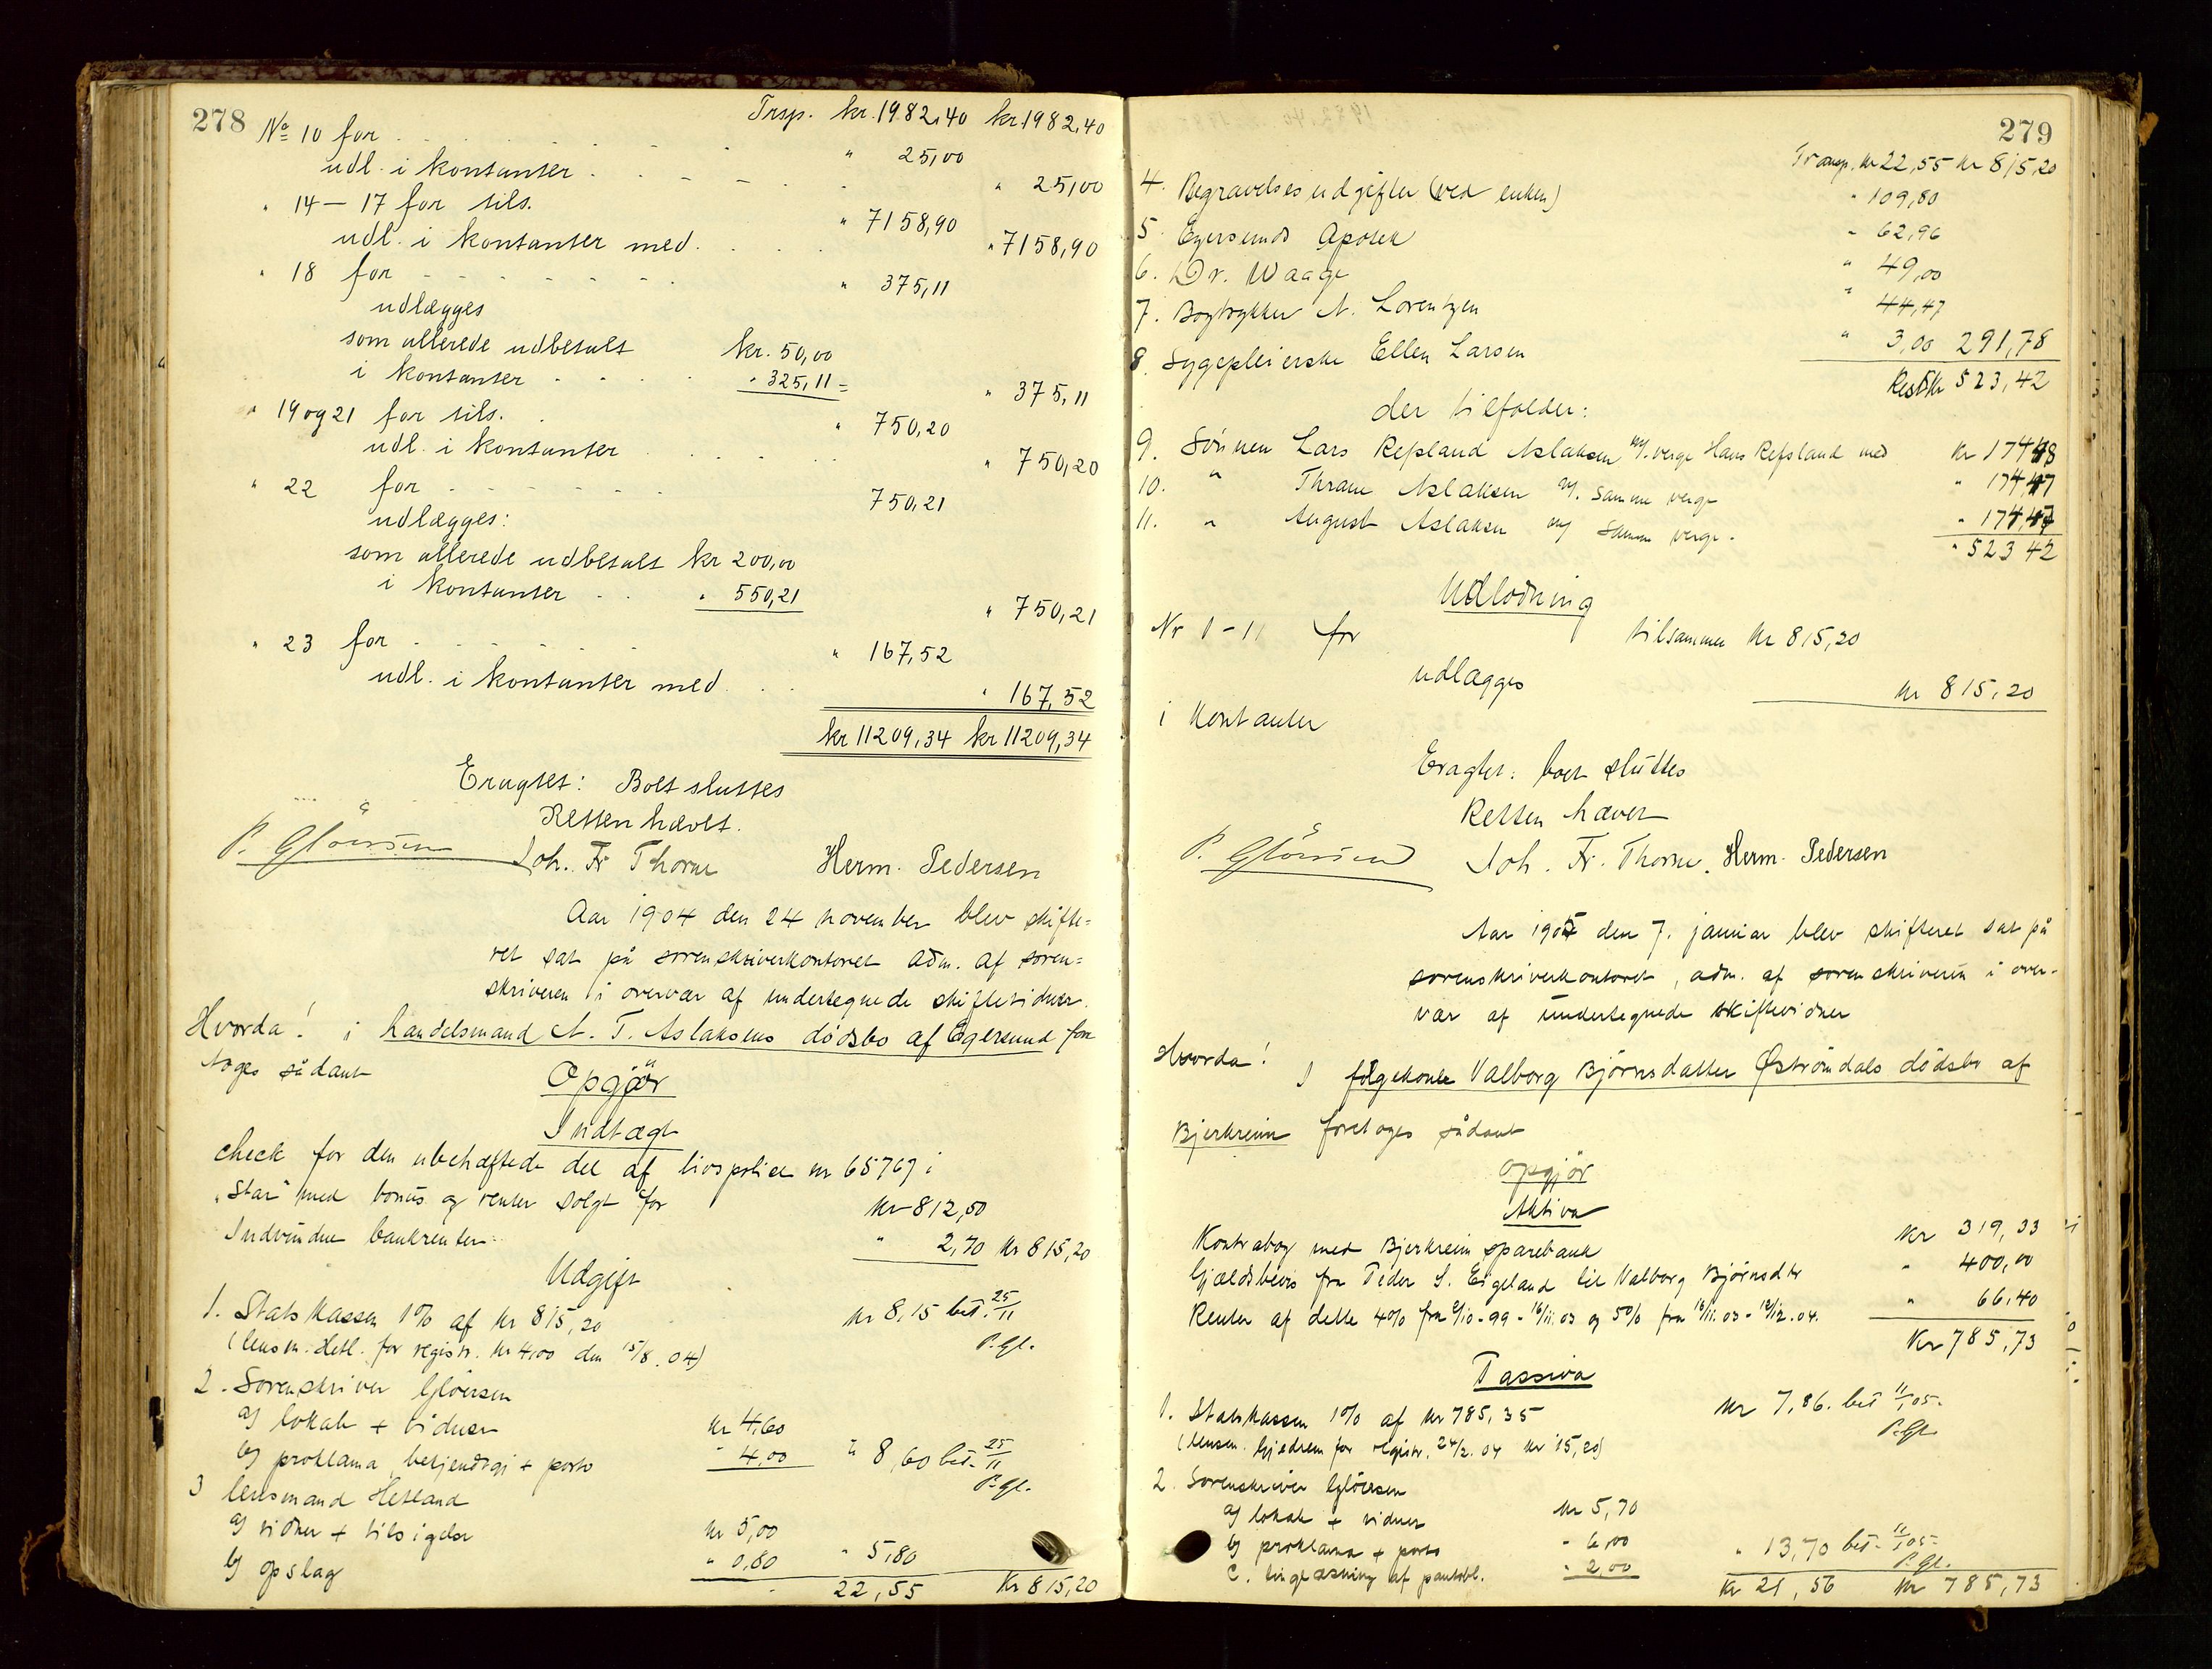 278
Trsp. kr. 1982,40 kr 1982,40
No 10 for . . . . . " 25,00
udl. i kontanter . . . . . " 25,00
" 14 – 17 for tils. " 7158,90
udl. i kontanter med . . . " 7158,90
" 18 for . . . . . " 375,11
udlægges
som allerede udbetalt kr. 50,00
i kontanter . . . . " 325,11 = " 375,11
" 19 og 21 for tils. " 750,20
udl. i kontanter . . . . " 750,20
" 22 for . . . . . 750,21
udlægges:
som allerede udbetalt kr 200,00
i kontanter . . " 550,21 " 750,21
" 23 for . . . . . " 167,52
udl. i kontanter med . . " 167,52
kr 11209,34 kr 11209,34
Eragtet: Boet sluttes
Retten hævet.
P. Gløersen Joh. Fr Thorne Herm. Pedersen
Aar 1904 den 24 november blev skifte=
ret sat på sorenskriverkontoret adm. af soren=
skriveren i overvær af undertegnede skiftevidner.
Hvorda! i handelsmand A. T. Aslaksens dødsbo af Egersund fore
toges sådant
Opgjør
Indtægt
check for den ubehæftede del af livspolice nr 65767 i
"Star" med bonus og renter solgt for kr 812,50
Indvundne bankrenter " 2,70 kr 815,20
Udgift
1. Statskassen 1% af kr 815,20 kr 8,15 bet. 25/11
(lensm. Hetl. for registr. kr 4,00 den 15/8. 04) P. Gl.
2. Sorenskriver Gløersen
a) lokale + vidner kr 4,60
b) proklama, bekjendtgj + porto " 4,00 " 8,60 bet. 25/11
P. Gl.
3 lensmand Hetland
a) vidner + tilsigelse kr 5,00
b) opslag " 0,80 " 5,80
" 22,55 Kr 815,20
279
Transp. kr 22,55 kr 815,20
4. Begravelsesudgifter (ved enken) " 109,80
5. Egersunds Apotek " 62,96
6. Dr. Waage " 49,00
7. Bogtrykker N. Lorentzen " 44,47
8. Sygepleierske Ellen Larsen " 3,00 291,78
Rest kr 523,42
der tilfalder:
9. Sønnen Lars Refsland Aslaksen v/. verge Hans Refsland med kr 174,48
10. " Thrane Aslaksen v/. samme verge " 174,47
11. " August Aslaksen v/ samme verge. " 174,47
" 523 42
Udlodning
Nr 1 – 11 for tilsammen kr 815,20
udlægges
i kontanter kr 815,20
Eragtet: boet sluttes
Retten hævet
P. Gløersen Joh. Fr. Thorne. Herm. Pedersen
Aar 1905 den 7. januar blev skifteret sat på
sorenskriverkontoret, adm. af sorenskriveren i over-
vær af undertegnede skiftevidner
Hvorda!
I følgekone Valborg Bjørnsdatter Østrømdals dødsbo af
Bjerkreim foretoges sådant
opgjør
Aktiva
Kontrabog med Bjerkreim sparebank kr 319,33
Gjældsbevis fra Peder S. Eigeland til Valborg Bjørnsdtr " 400,00
Renter af dette 4% fra 9/10-99 - 16/11.03 og 5% fra 16/11.03 - 12/12.04. " 66,40
Kr 785,73
Passiva
1. Statskassen 1% af kr 785,35 kr 7,86. bet 11/1 05.
(lensm. Gjedrem for registr. 24/2. 04 kr 15,20) P. Gl.
2. Sorenskriver Gløersen
a) lokale + vidner kr 5,70
b) proklama + porto " 6,00
c. tinglæsning af pantobl. " 2,00 " 13,70 bet. 11/1 05.
P. Gl.
kr 21,56 kr 785,73